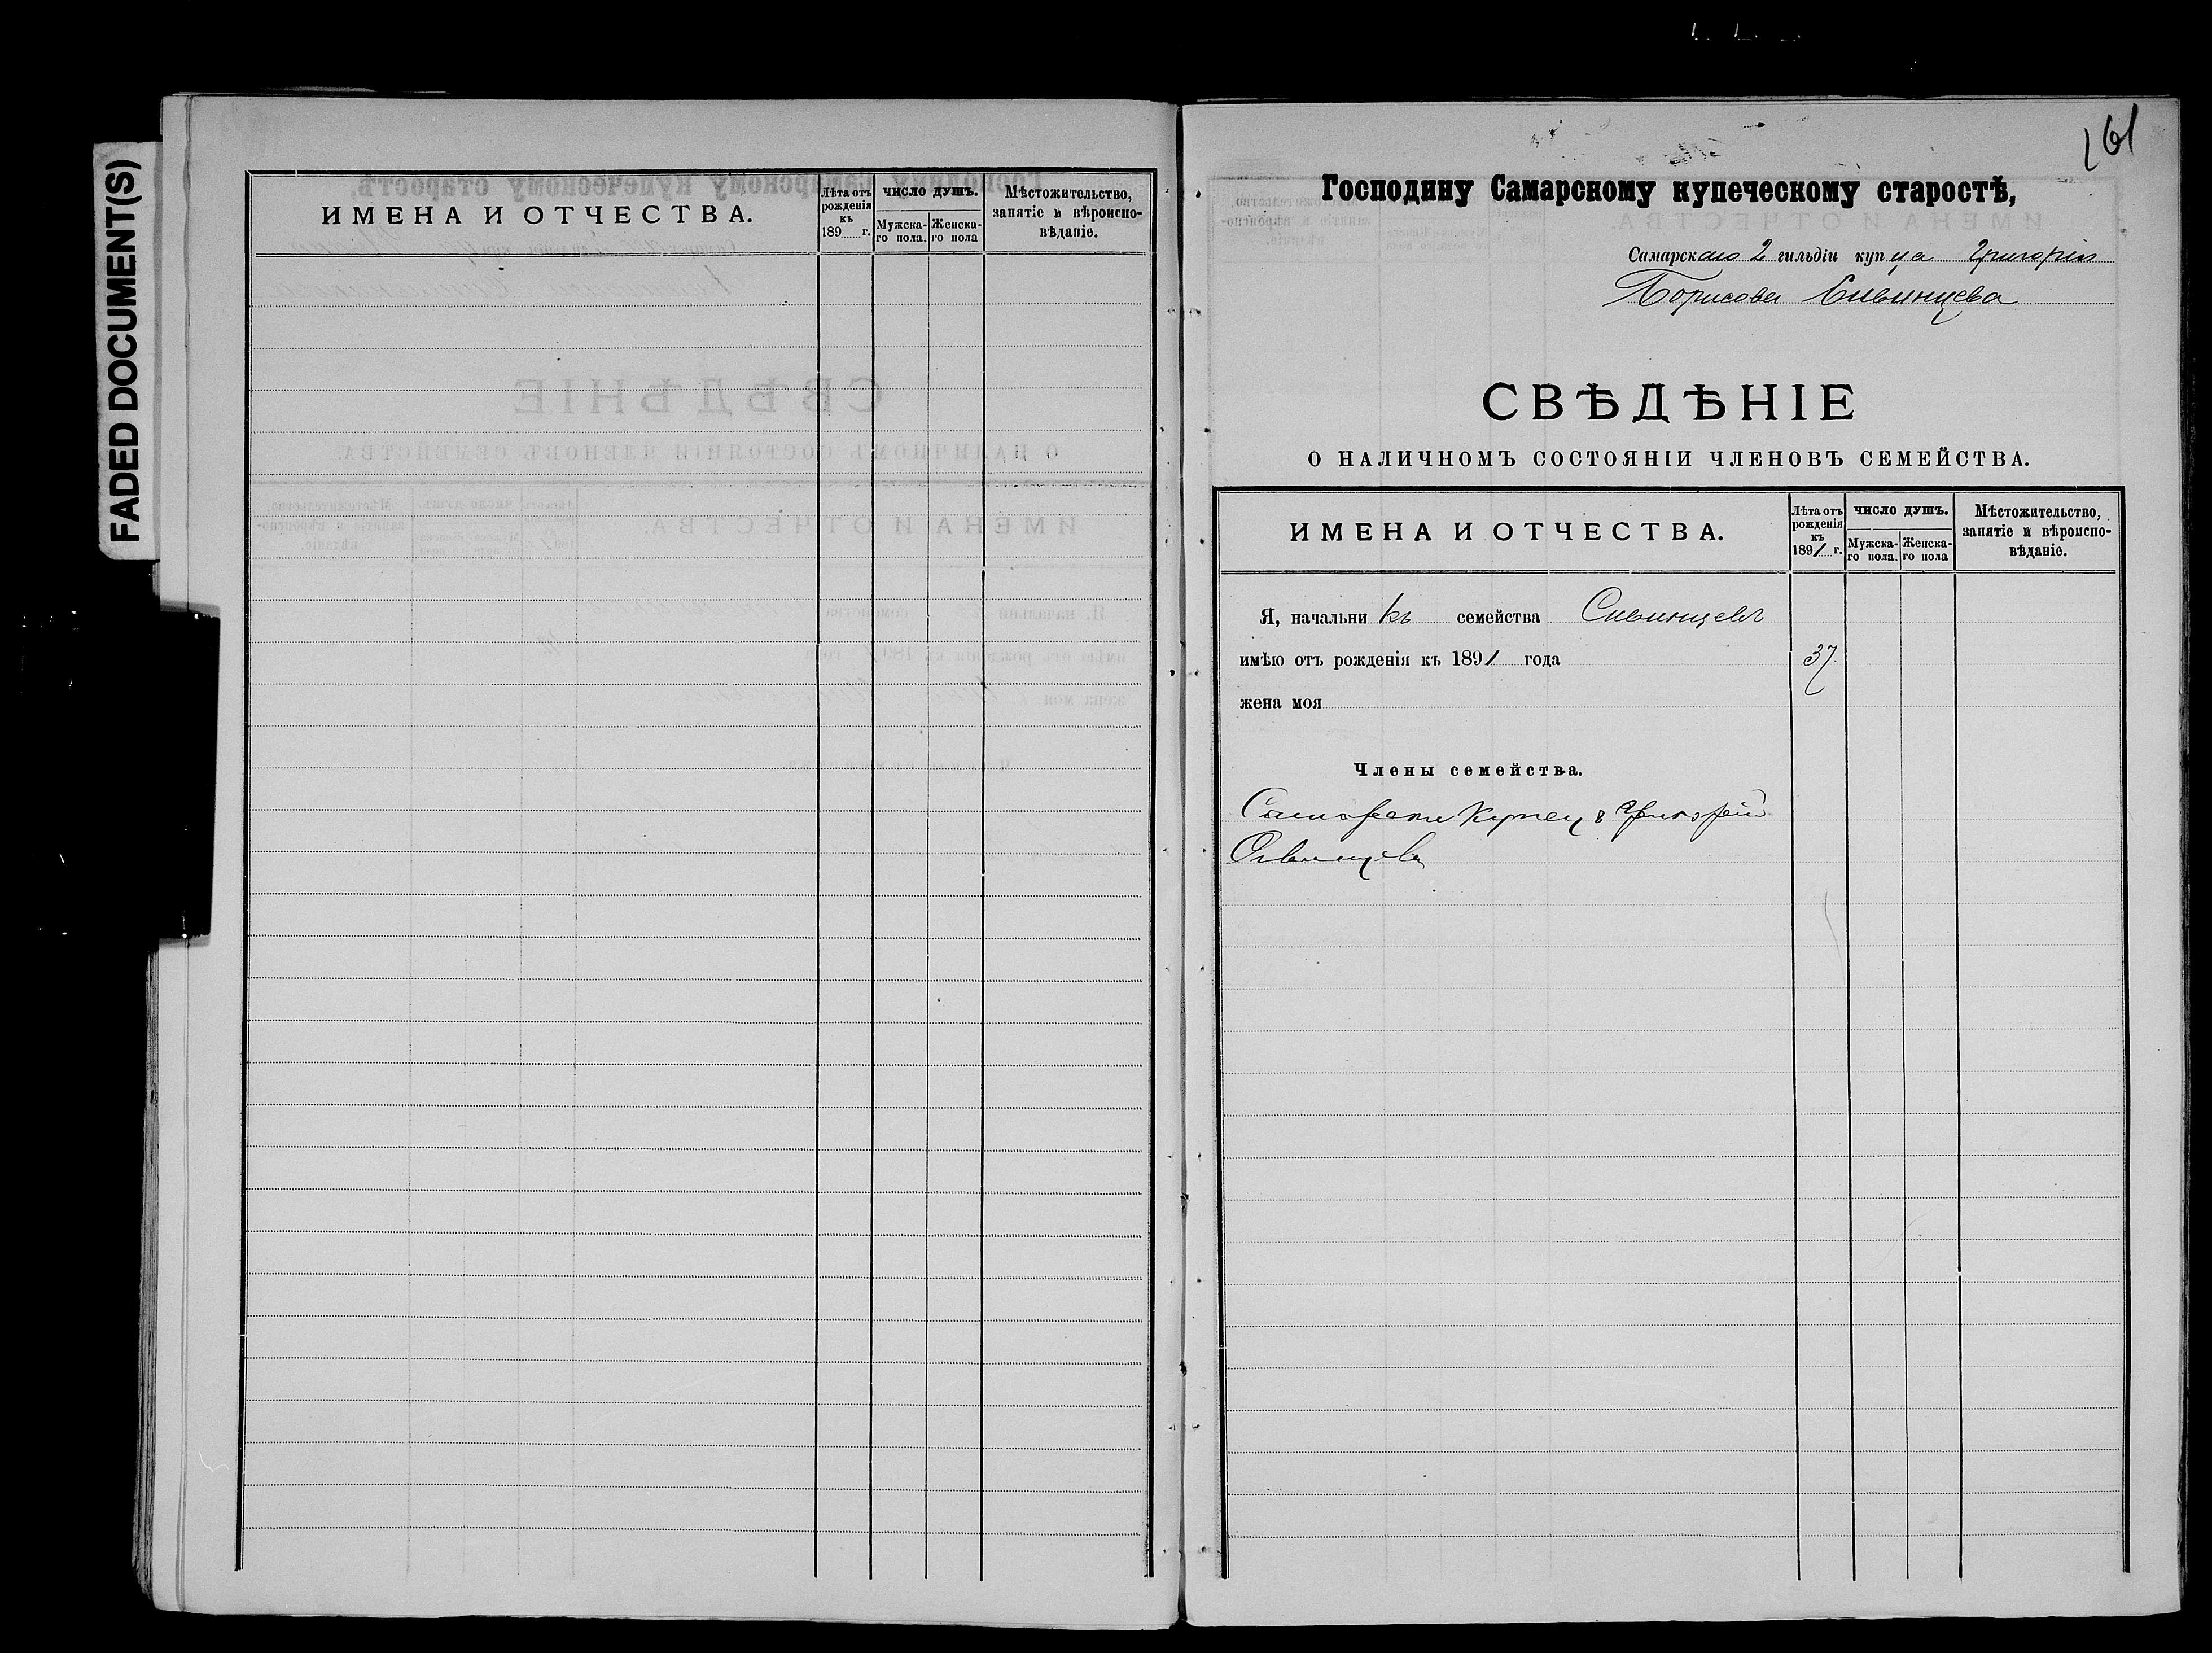 FADED DOCUMENT(S)
ИМЕНА И ОТЧЕСТВА.
Лѣта отъ рожденія къ 189 г.
ЧИСЛО ДУШЪ.
Мужска-го пола.
Женска-го пола
Мѣстожительство, занятіе и вѣроиспо-вѣданіе.
161
Господину Самарскому купеческому старостѣ,
Самарскаго 2 гильдіи купца Григорія
Борисова Сивинцева
СВѢДѢНІЕ
О НАЛИЧНОМЪ СОСТОЯНІИ ЧЛЕНОВЪ СЕМЕЙСТВА.
ИМЕНА И ОТЧЕСТВА.
Лѣта отъ рожденія къ 1891 г.
ЧИСЛО ДУШЪ.
Мужска-го пола.
Женска-го пола
Мѣстожительство, занятіе и вѣроиспо-вѣданіе.
Я, начальникъ семейства Сивинцевъ
имѣю отъ рожденія къ 1891 года 37
жена моя
Члены семейства.
Самарски Купец Григорей
Сивинцевъ